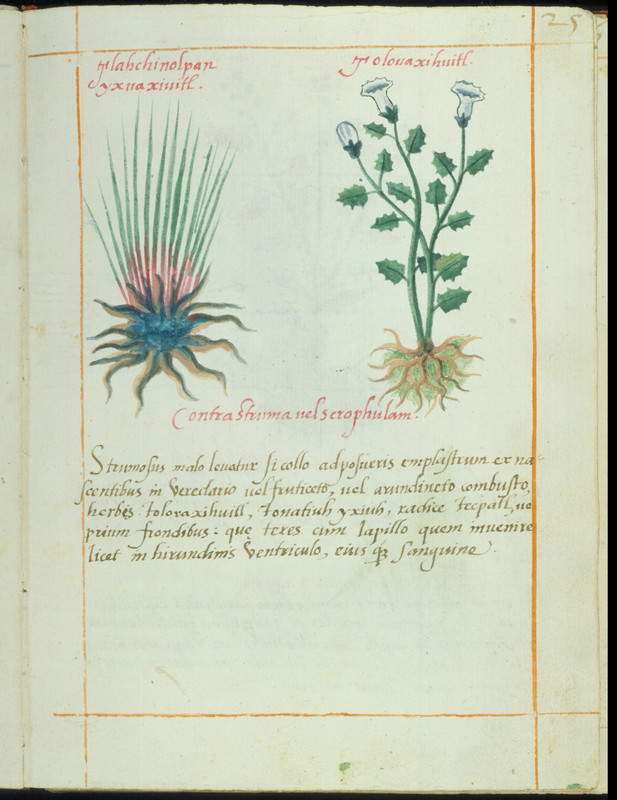 25
Tlahchinolpan
yxuaxiuitl.
Tolouaxihuitl.
Contra strumã uel scrophulam.
Strumosus malo leuatur si collo adposueris emplastrum ex na-
scentibus in Veredario uel fruticeto, uel arundineto combusto,
herbęs toloxaxihuitl, Tonatiuh yxiuh, radice tecpatl, ue
prium frondibus: que teres cum lapillo quem inuenire
licet in hirundinis Ventriculo, eius qʒ sanguine.